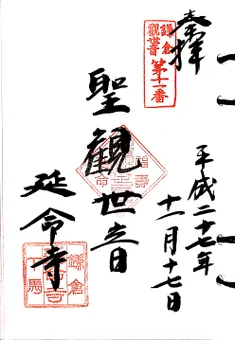 奉拝
鎌倉
観世音
第十一番
平成二十七年
十一月十七日
聖観世音
延命寺
鎌倉